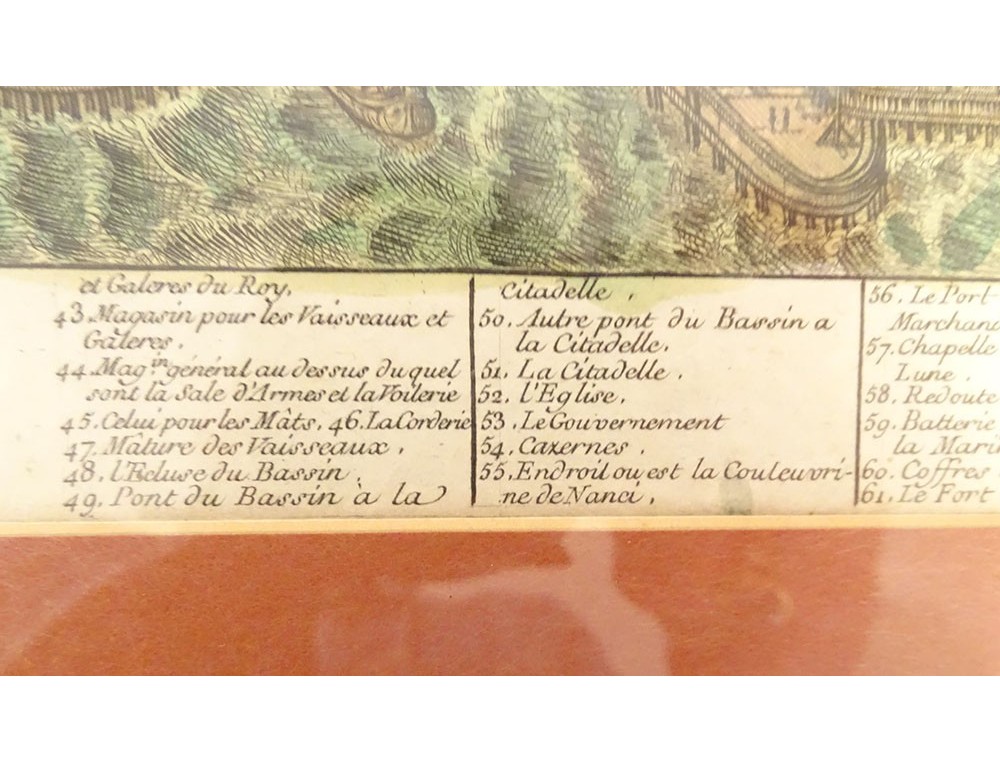 et Galeres du Roy,
43. Magasin pour les Vaisseaux et
Galeres.
44. Mag.in général au dessus du quel
sont la Sale d'Armes et la Voilerie
45. Celui pour les Mâts, 46. La Corderie
47. Mâture des Vaisseaux,
48. l'Ecluse du Bassin.
49. Pont du Bassin à la
Citadelle,
50. Autre pont du Bassin a
la Citadelle.
51. La Citadelle.
52. l'Eglise.
53. Le Gouvernement
54. Cazernes.
55. Endroit ou est la Couleuvri-
ne de Nanci,
56. Le Port
Marchand
57. Chapelle
Lune.
58. Redoute
59. Batterie
la Mari
60. Coffres
61. Le Fort